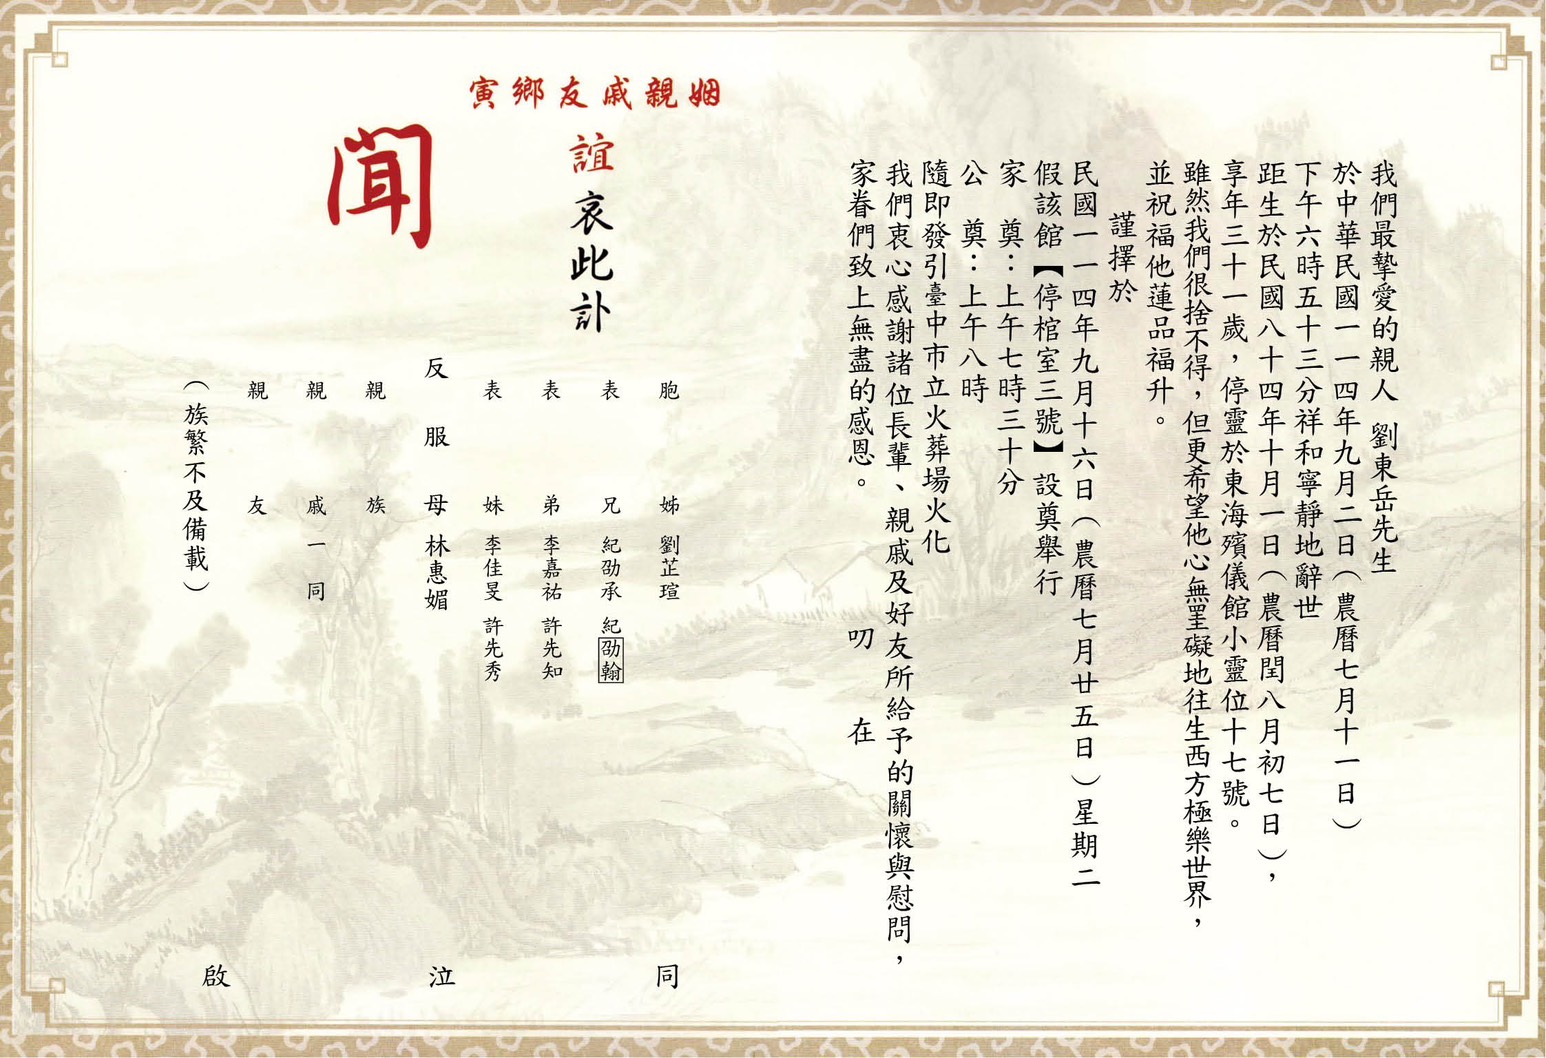 我們最摯愛的親人 劉東岳先生
於中華民國一一四年九月二日（農曆七月十一日）
下午六時五十三分祥和寧靜地辭世
距生於民國八十四年十月一日（農曆閏八月初七日），
享年三十一歲，停靈於東海殯儀館小靈位十七號。
雖然我們很捨不得，但更希望他心無罣礙地往生西方極樂世界，
並祝福他蓮品福升。
謹擇於
民國一一四年九月十六日（農曆七月廿五日）星期二
假該館【停棺室三號】設奠舉行
家 奠：上午七時三十分
公 奠：上午八時
隨即發引臺中市立火葬場火化
我們衷心感謝諸位長輩、親戚及好友所給予的關懷與慰問，
家眷們致上無盡的感恩。 叨 在
寅鄉友戚親姻
誼哀此訃
聞
胞 姊 劉芷瑄
表 兄 紀劭承 紀劭翰
表 弟 李嘉祐 許先知
表 妹 李佳旻 許先秀
反服母 林惠媚
親 族
親 戚 一同
親 友
（族繁不及備載）
同 泣 啟